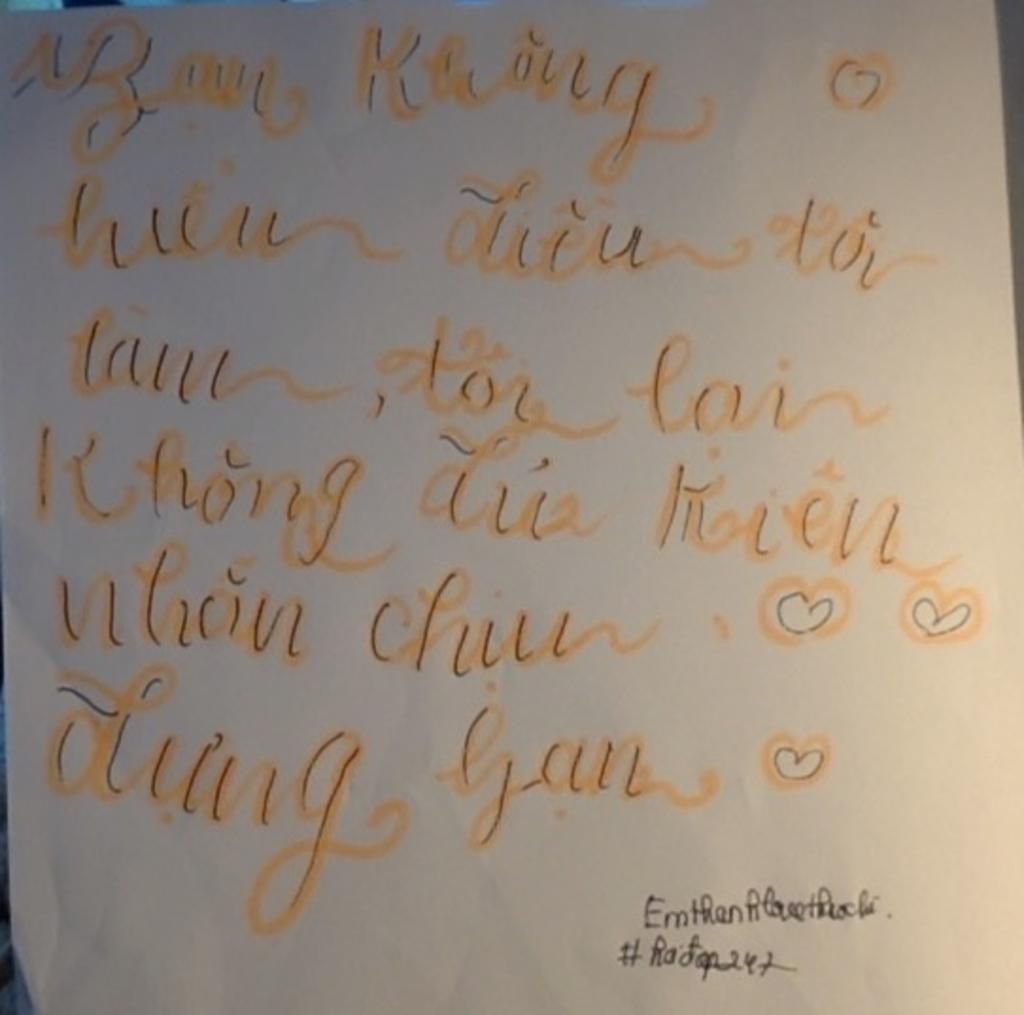 Bạn Không
hiểu điều tôi
làm, tôi lại
Không đủ Kiên
nhẫn chịu.
đựng bạn